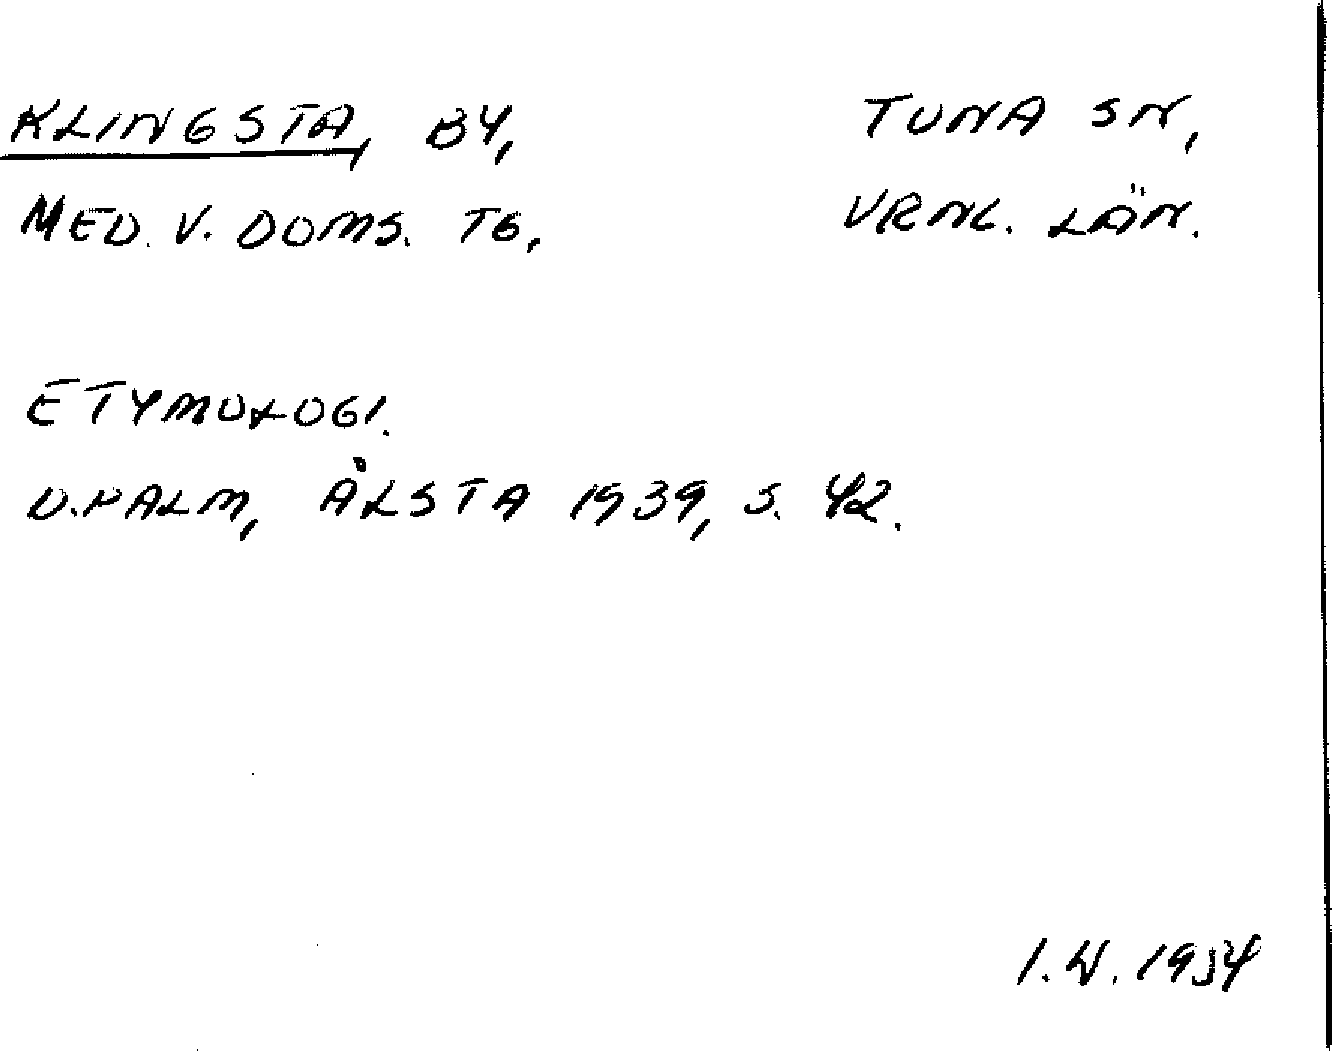 KLINGSTA, BY, TUNA SN,
MED. V. DOMS. TG, VRNL. LÄN.
ETYMOLOGI.
D. PALM, ÅLSTA 1939, S. 42.
I. W. 1954